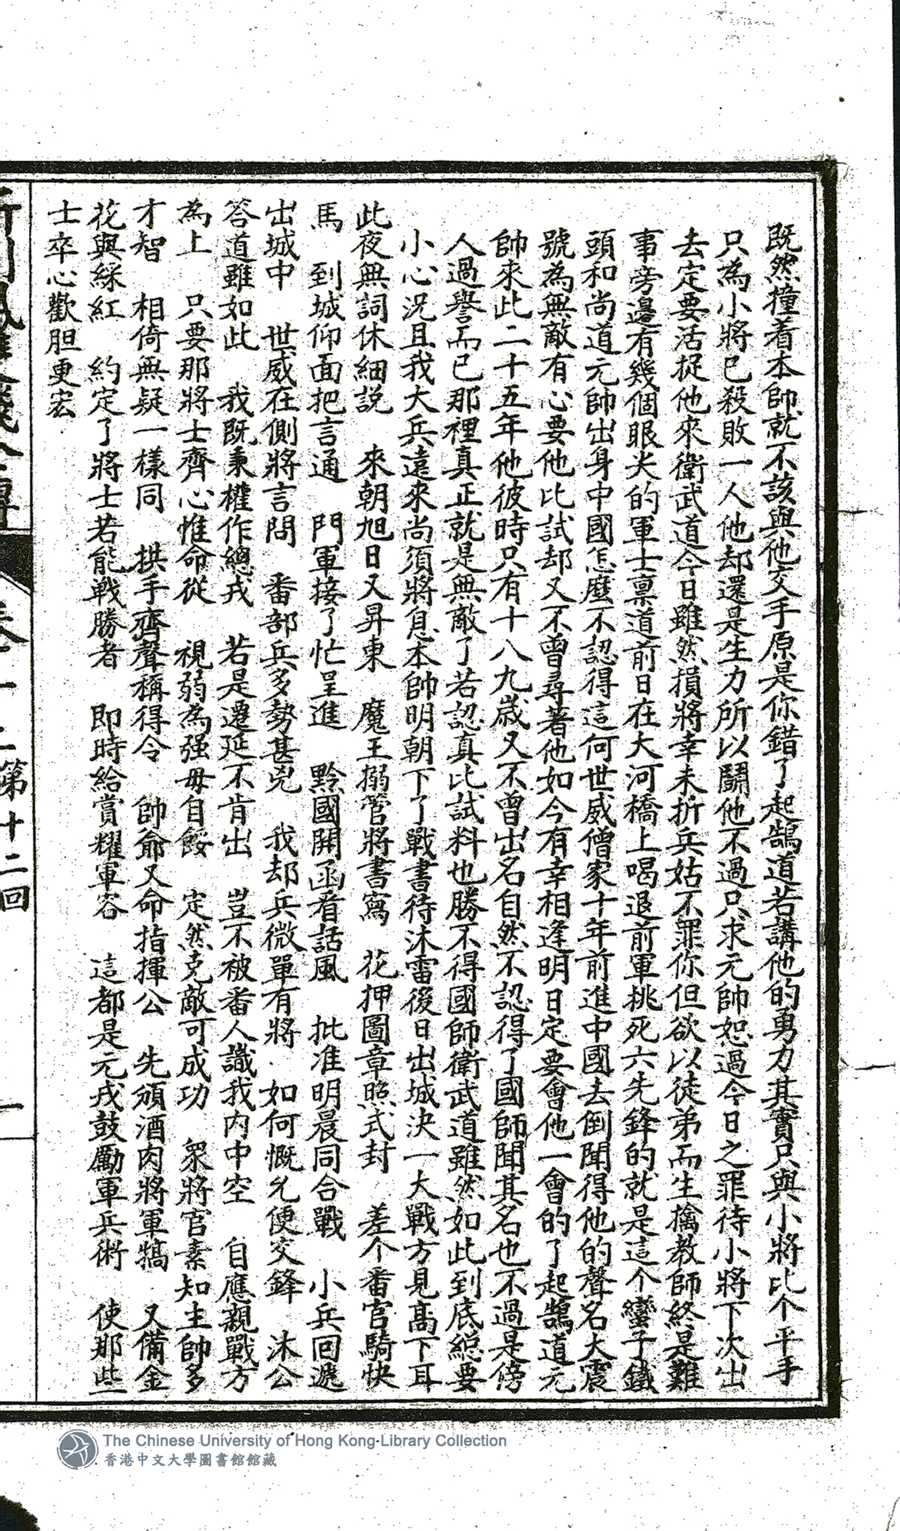 既然撞着本帥就不該與他交手原是你錯了起鵠道若講他的勇力其實只與小將比个平手
只為小將已殺敗一人他却還是生力所以鬪他不過只求元帥恕過今日之罪待小將下次出
去定要活捉他來衛武道今日雖然損將幸未折兵姑不罪你但欲以徒弟而生擒教師終是難
事旁邊有幾個眼尖的軍士禀道前日在大河橋上喝退前軍挑死六先鋒的就是這个蠻子鐵
頭和尚道元帥出身中國怎麽不認得這何世威僧家十年前進中國去倒聞得他的聲名大震
號為無敵有心要他比試却又不曾尋著他如今有幸相逢明日定要會他一會的了起鵠道元
帥來此二十五年他彼時只有十八九歲又不曾出名自然不認得了國師聞其名也不過是傍
人過譽而已那裡真正就是無敵了若認真比試料也勝不得國師衛武道雖然如此到底總要
小心況且我大兵遠來尚須將息本帥明朝下了戰書待沐雷後日出城決一大戰方見高下耳
此夜無詞休細説　來朝旭日又昇東　魔王搦管將書寫　花押圖章照式封　差个番官騎快
馬　到城仰面把言通　門軍接了忙呈進　黔國開函看話風　批准明晨同合戰　小兵回遞
出城中　世威在側將言問　番部兵多勢甚兇　我却兵微單有將　如何慨允便交鋒　沐公
答道雖如此　我既秉權作總戎　若是遷延不肯出　豈不被番人識我内中空　自應親戰方
為上　只要那將士齊心惟命從　視弱為強毋自餒　定然克敵可成功　衆將官素知主帥多
才智　相倚無疑一樣同　拱手齊聲稱得令　帥爺又命指揮公　先頒酒肉將軍犒　又備金
花與綵紅　約定了將士若能戰勝者　即時給賞耀軍容　這都是元戎鼓勵軍兵術　使那些
士卒心歡胆更宏
第十二回
The Chinese University of Hong Kong-Library Collection
香港中文大學圖書館館藏